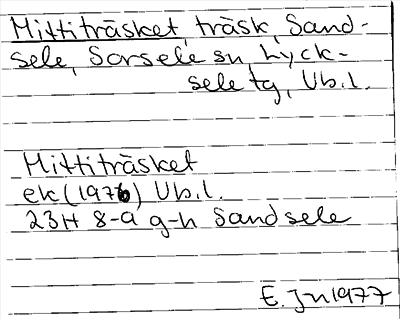 Mittiträsket, träsk, Sand-
sele, Sorsele sn, Lyck-
sele tg, Vb.l.
Mittiträsket
ek (1976) Vb.l.
23H 8-9 g-h Sandsele
E. Jn 1977